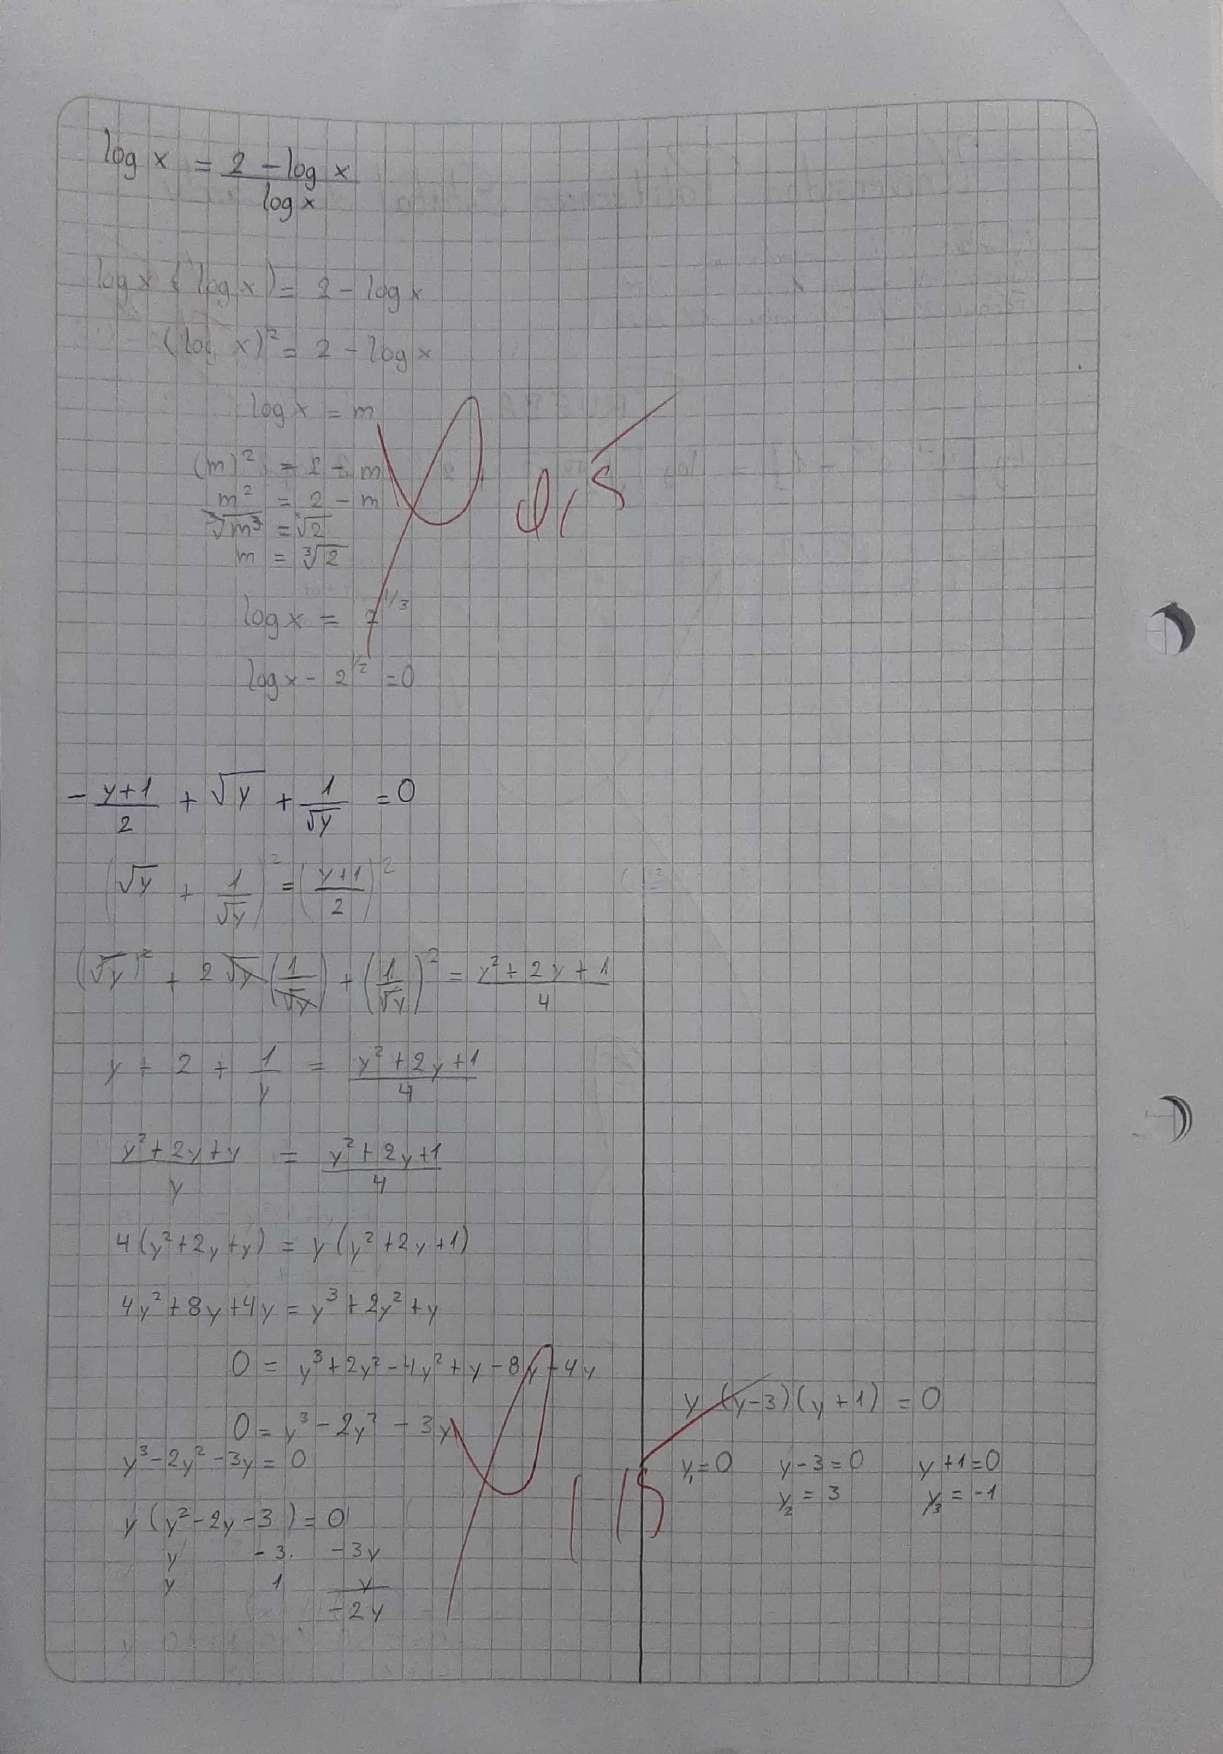 log x = (2 - log x)/(log x)
log x (log x) = 2 - log x
(log x)² = 2 - log x
log x = m
(m)² = 2 - m
m² = 2 - m
∛m³ = ∛2
m = ∛2
0,5
log x = 2^1/3
log x - 2^1/2 = 0
- (y+1)/2 + √y + 1/√y = 0
(√y + 1/√y)² = ((y+1)/2)²
(√y)² + 2√y (1/√y) + (1/√y)² = (y² + 2y + 1)/4
y + 2 + 1/y = (y² + 2y + 1)/4
(y² + 2y + y)/y = (y² + 2y + 1)/4
4(y² + 2y + y) = y(y² + 2y + 1)
4y² + 8y + 4y = y³ + 2y² + y
0 = y³ + 2y² - 4y² + y - 8y + 4y
0 = y³ - 2y² - 3y
y³ - 2y² - 3y = 0
y (y² - 2y - 3) = 0
y -3 -3y
y 1 y
-2y
1,5
y (y-3)(y+1) = 0
y₁ = 0 y - 3 = 0 y + 1 = 0
y₂ = 3 y₃ = -1